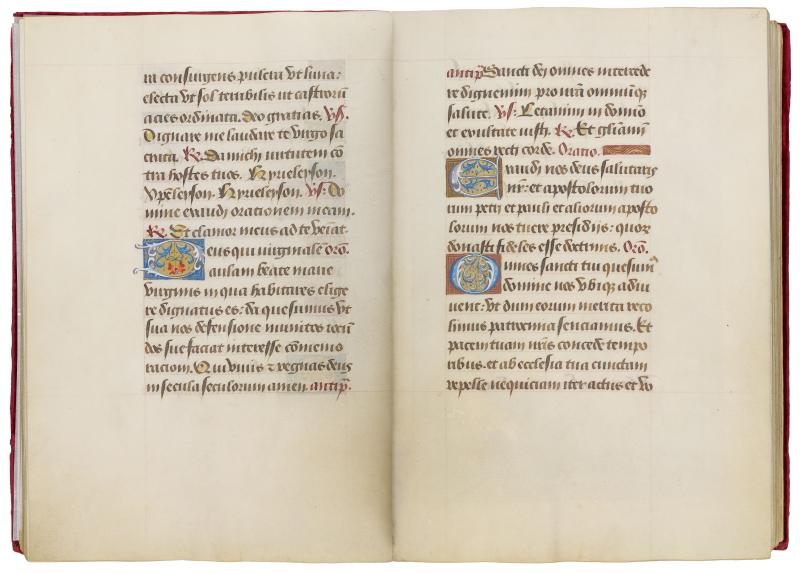 ta consurgens pulcra vt luna:
electa vt sol terribilis ut castrorū
acies ordinata. Deo gratias. Vs.
Dignare me laudare te virgo sa
crata. R. Da michi virtutem cō
tra hostes tuos. Kyrieleyson.
Xp̄eleyson. Kyrieleyson. Vs: Do
mine exaudi orationem meam.
R. Et clamor meus ad te veniat.
Deus qui virginalē Orō.
aulam beate marie
virginis in qua habitares elige
re dignatus es: da quesumus vt
sua nos defensione munitos iocū
dos sue faciat interesse cōmemo
rationi. Qui viuis & regnas deus
in secula seculorum amen. antip̄.
56
antip̄ Sancti dei omnes intercede
re dignemini pro nrā omniūq̄
salute. Vs: Letamini in domino
et exultate iusti. R. Et gliāmī
omnes recti corde. Oratio.
Exaudi nos deus salutaris
nr̄: et apostolorum tuo
rum petri et pauli et aliorum aposto
lorum nos tuere presidijs: quor̄
donasti fideles esse doctrinis. Orō.
Omnes sancti tui quesum̄
domine nos vbique adiu
uent: vt dum eorum merita reco
limus patrocinia senciamus. Et
pacem tuam nr̄is concede tempo
ribus. et ab ecclesia tua cunctam
repelle nequiciam iter actus et vo